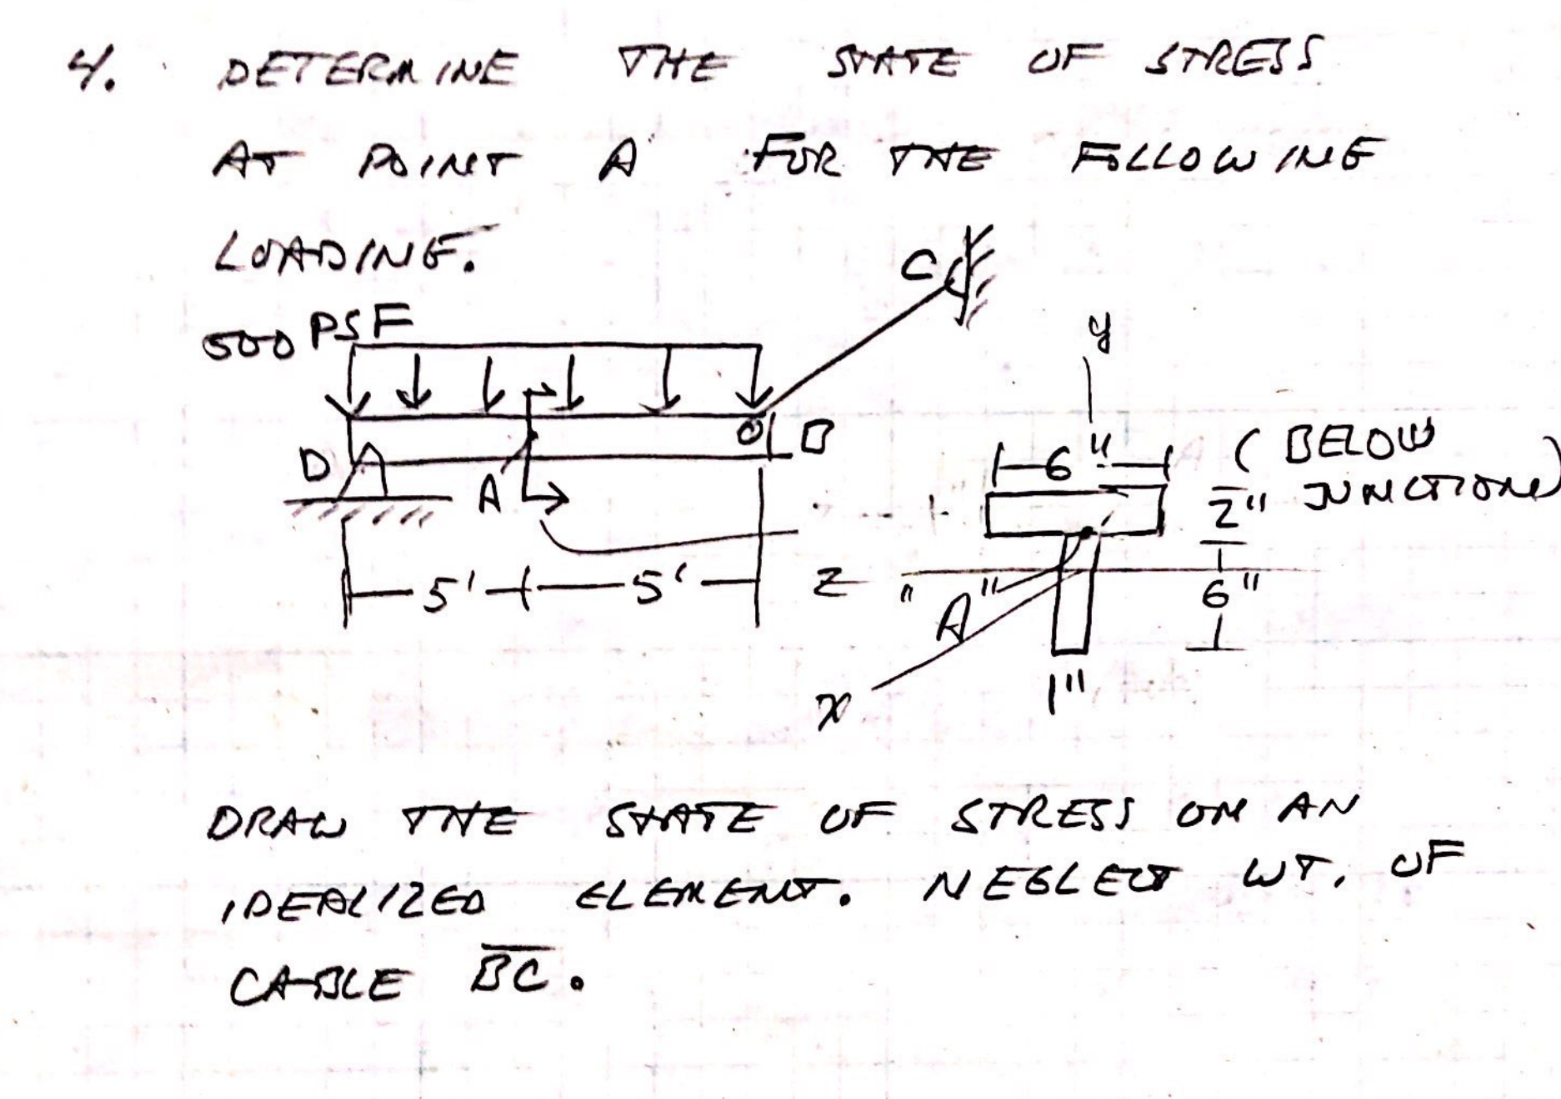 4. DETERMINE THE STATE OF STRESS
AT POINT A FOR THE FOLLOWING
LOADING.
C
500 PSF
y
D
A
B
6" (BELOW
2" JUNCTION)
5' 5'
z
"A"
6"
x
1"
DRAW THE STATE OF STRESS ON AN
IDEALIZED ELEMENT. NEGLECT WT. OF
CABLE BC.